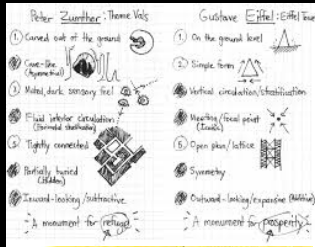 Peter Zumther : Therme Vals
① Carved out of the ground
Cave-like
(Asymmetrical)
③ Muted, dark sensory feel
Fluid interior circulation
⑤ Tightly connected
Partially buried
(Hidden)
Inward-looking/subtractive
A monument for refuge
Gustave Eiffel : Eiffel Tower
① On the ground level
② Simple form
Vertical circulation/stratification
Meeting/focal point
(Iconic)
⑤ Open plan/lattice
Symmetry
Outward-looking/expansive (Additive)
A monument for prosperity